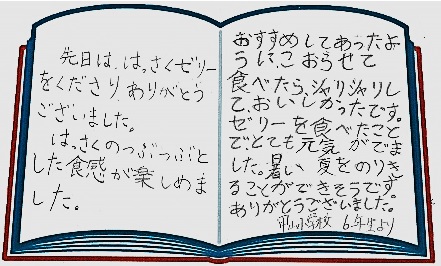 先日は、はっさくゼリー
をくださりありがとう
ございました。
はっさくのつぶつぶと
した食感が楽しめま
した。
おすすめしてあったよ
うにこおらせて
食べたら、シャリシャリし
て、おいしかったです。
ゼリーを食べたこと
で、とても元気がでま
した。暑い夏をのりき
ることができそうです。
ありがとうございました。
小学校 6年生より